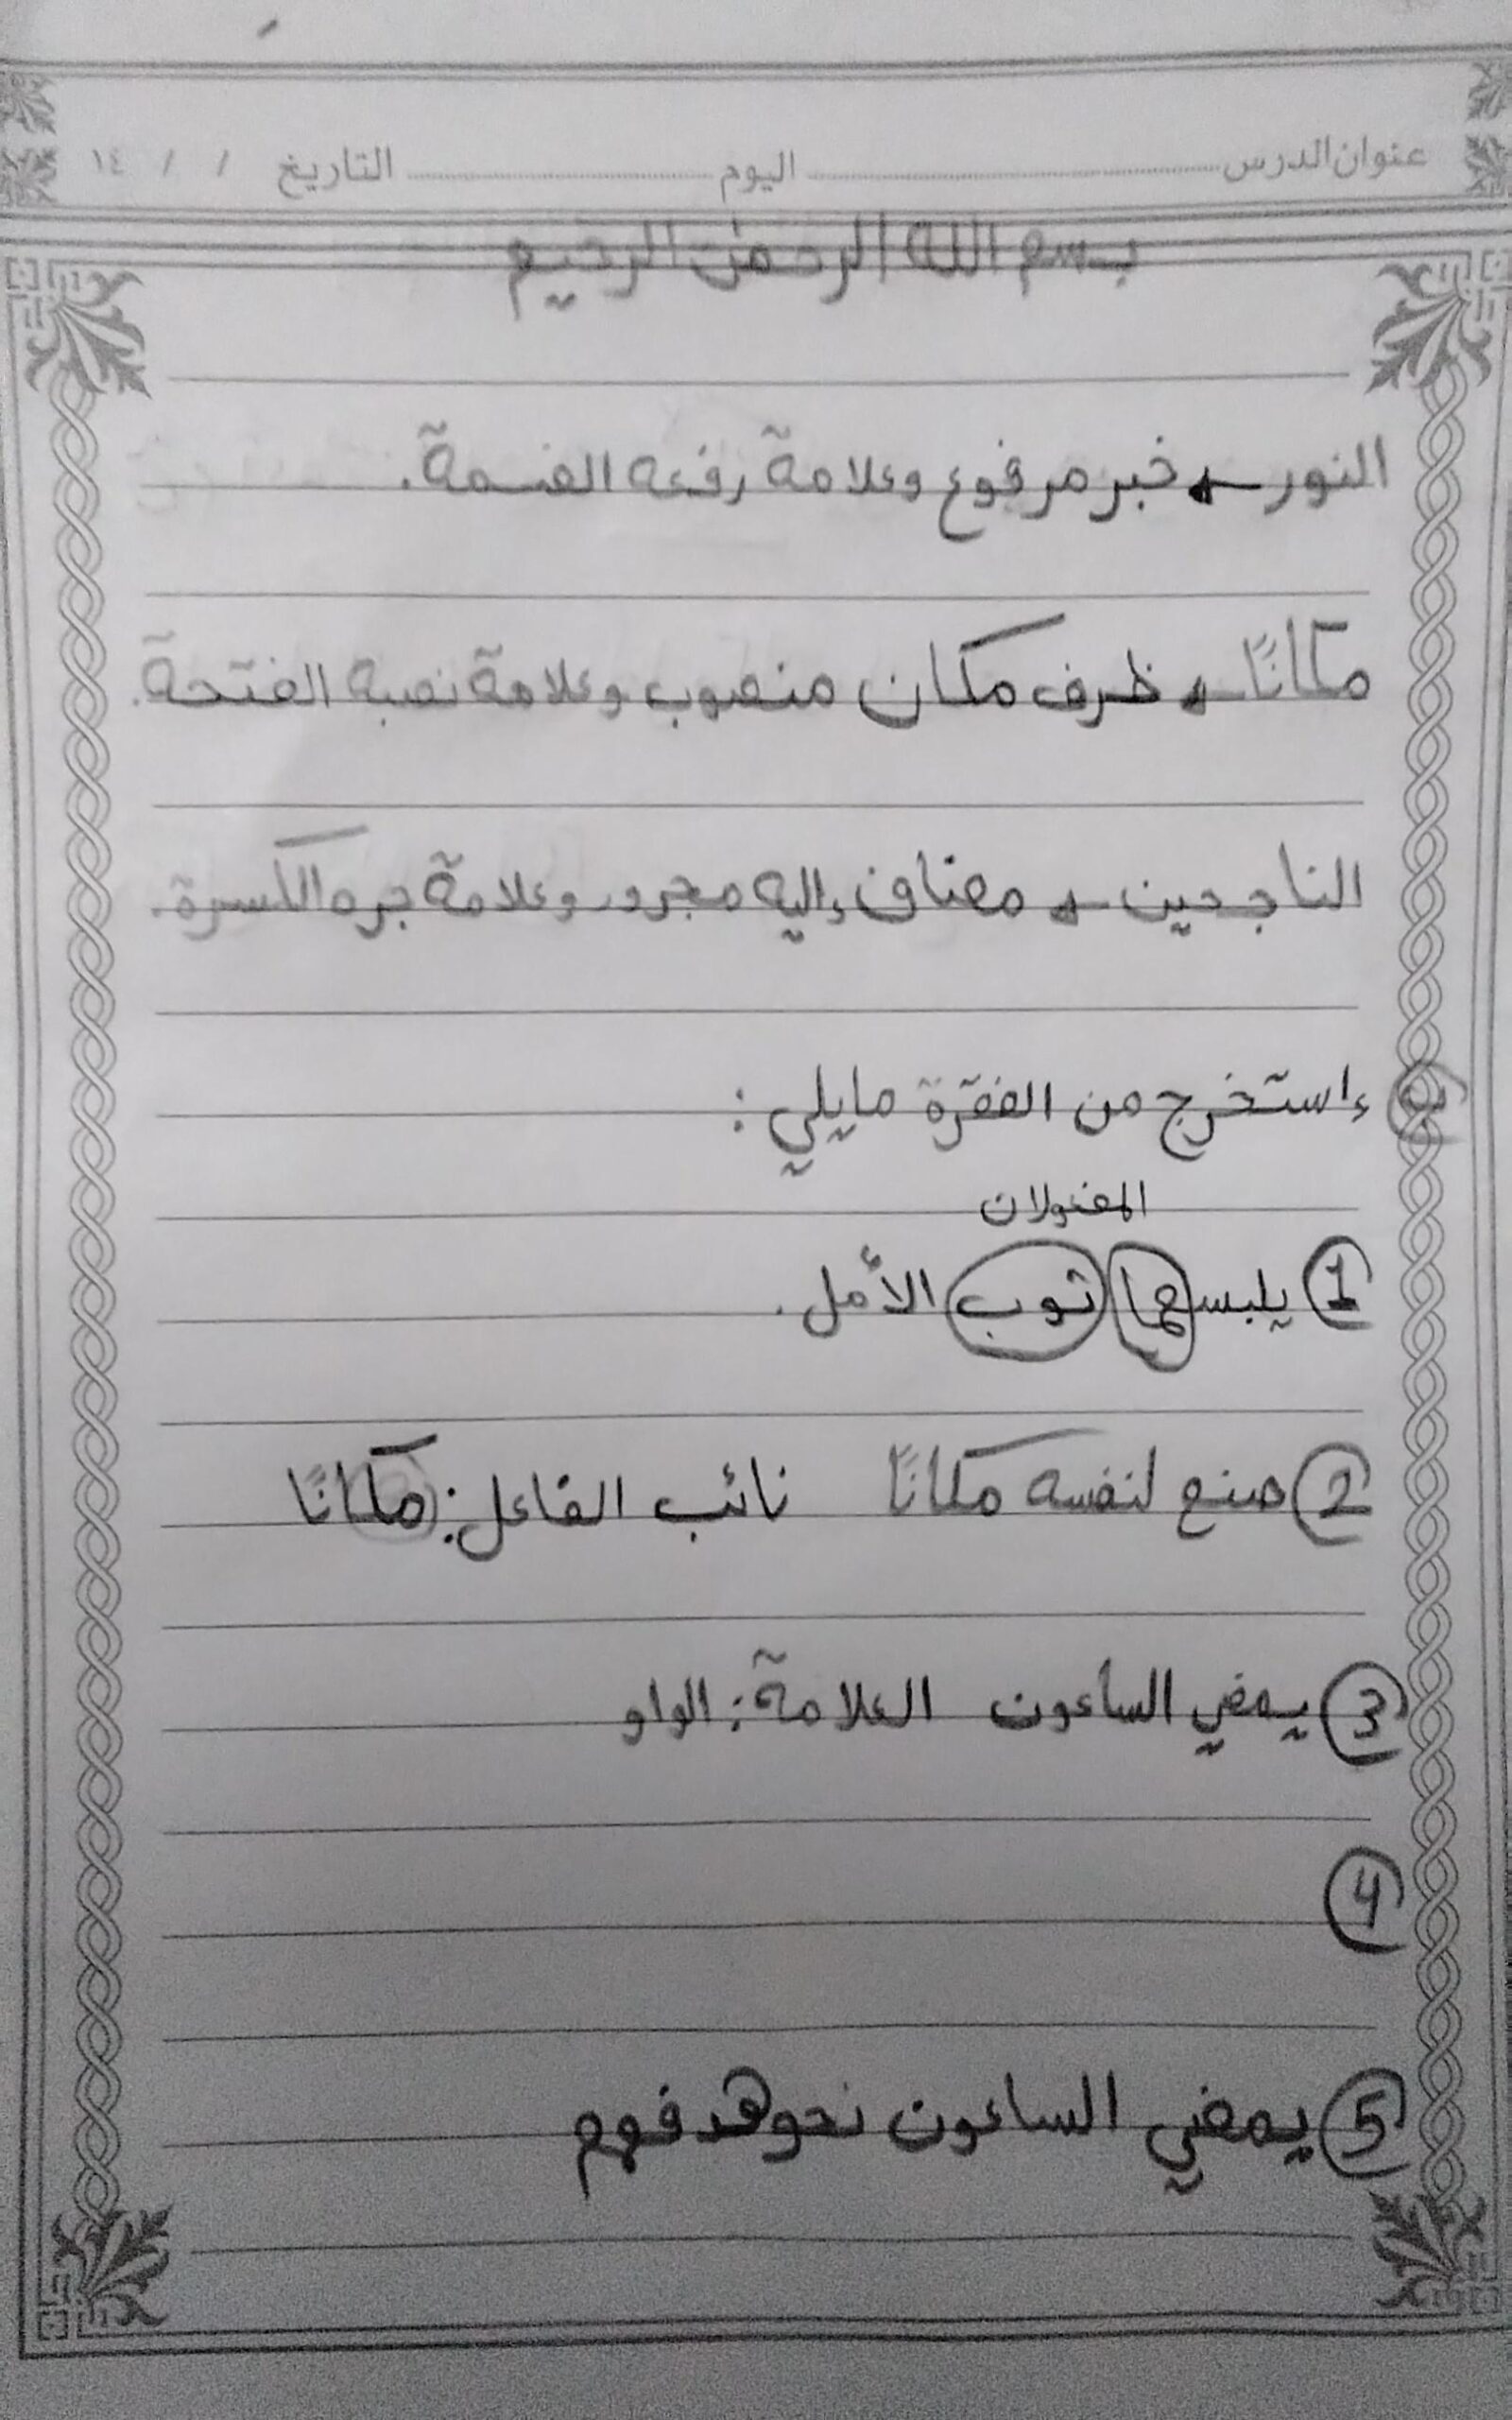 عنوان الدرس ........ اليوم ........ التاريخ / / ١٤
بسم الله الرحمن الرحيم
النور ← خبر مرفوع وعلامة رفعه الضمة.
مكانًا ← ظرف مكان منصوب وعلامة نصبه الفتحة.
الناجحين ← مضاف إليه مجرور وعلامة جره الكسرة.
ب إستخرج من الفقرة مايلي:
المفعولان
1 يلبسهما ثوب الأمل.
2 صنع لنفسه مكانًا نائب الفاعل: مكانًا
3 يمضي الساعون العلامة: الواو
4
5 يمضي الساعون نحو هدفهم